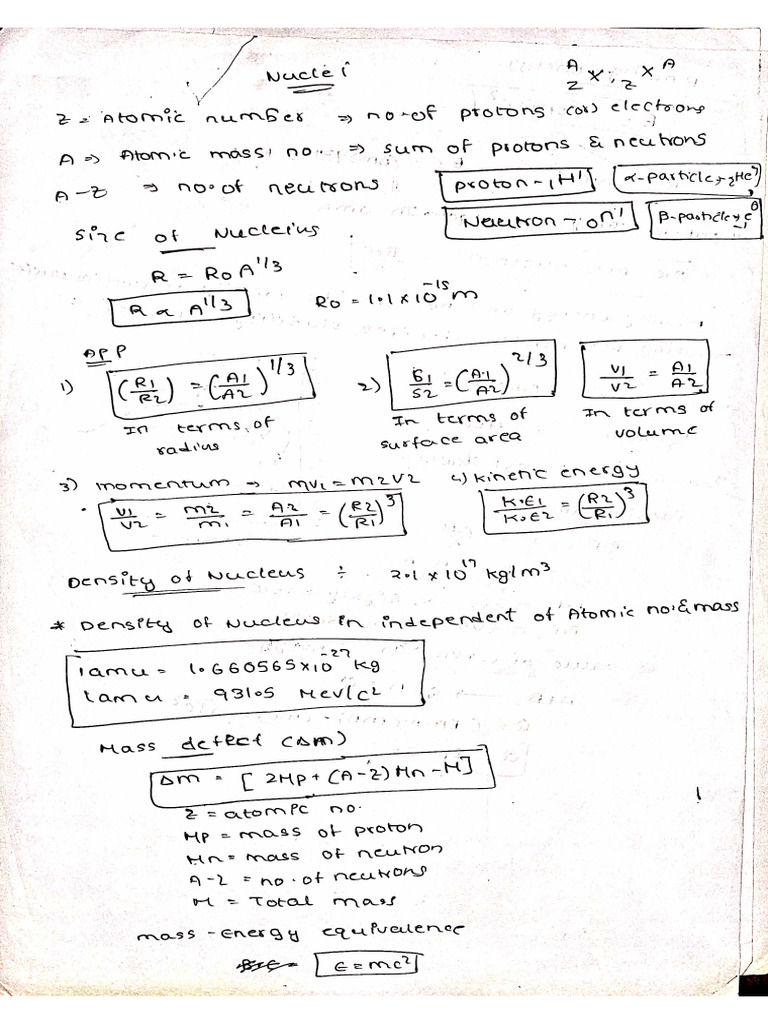 Nuclei
A Z X, Z X A
Z = Atomic number ⇒ no. of protons (or) electrons
A ⇒ Atomic mass no ⇒ sum of protons & neutrons
A-Z ⇒ no. of neutrons
proton - ₁H¹
α-particle → ₂He⁴
Neutron - ₀n¹
β-particle → ₋₁e⁰
Size of Nucleius
R = R₀A^1/3
R ∝ A^1/3
R₀ = 1.1 × 10^-15 m
APP
1) (R1/R2) = (A1/A2)^1/3
In terms of radius
2) S1/S2 = (A1/A2)^2/3
In terms of surface area
V1/V2 = A1/A2
In terms of volume
3) momentum → mv₁ = m2v2
V1/V2 = m2/m1 = A2/A1 = (R2/R1)^3
4) kinetic energy
K.E1/K.E2 = (R2/R1)^3
Density of Nucleus ÷ 2.1 × 10^17 kg/m³
* Density of Nucleus in independent of Atomic no. & mass
1amu = 1.660565×10^-27 kg
1amu = 931.5 Mev/c²
Mass defect (Δm)
Δm = [ZMp + (A-Z)Mn - M]
Z = atomic no.
Mp = mass of proton
Mn = mass of neutron
A-Z = no. of neutrons
M = Total mass
mass - Energy equivalence
E = mc²